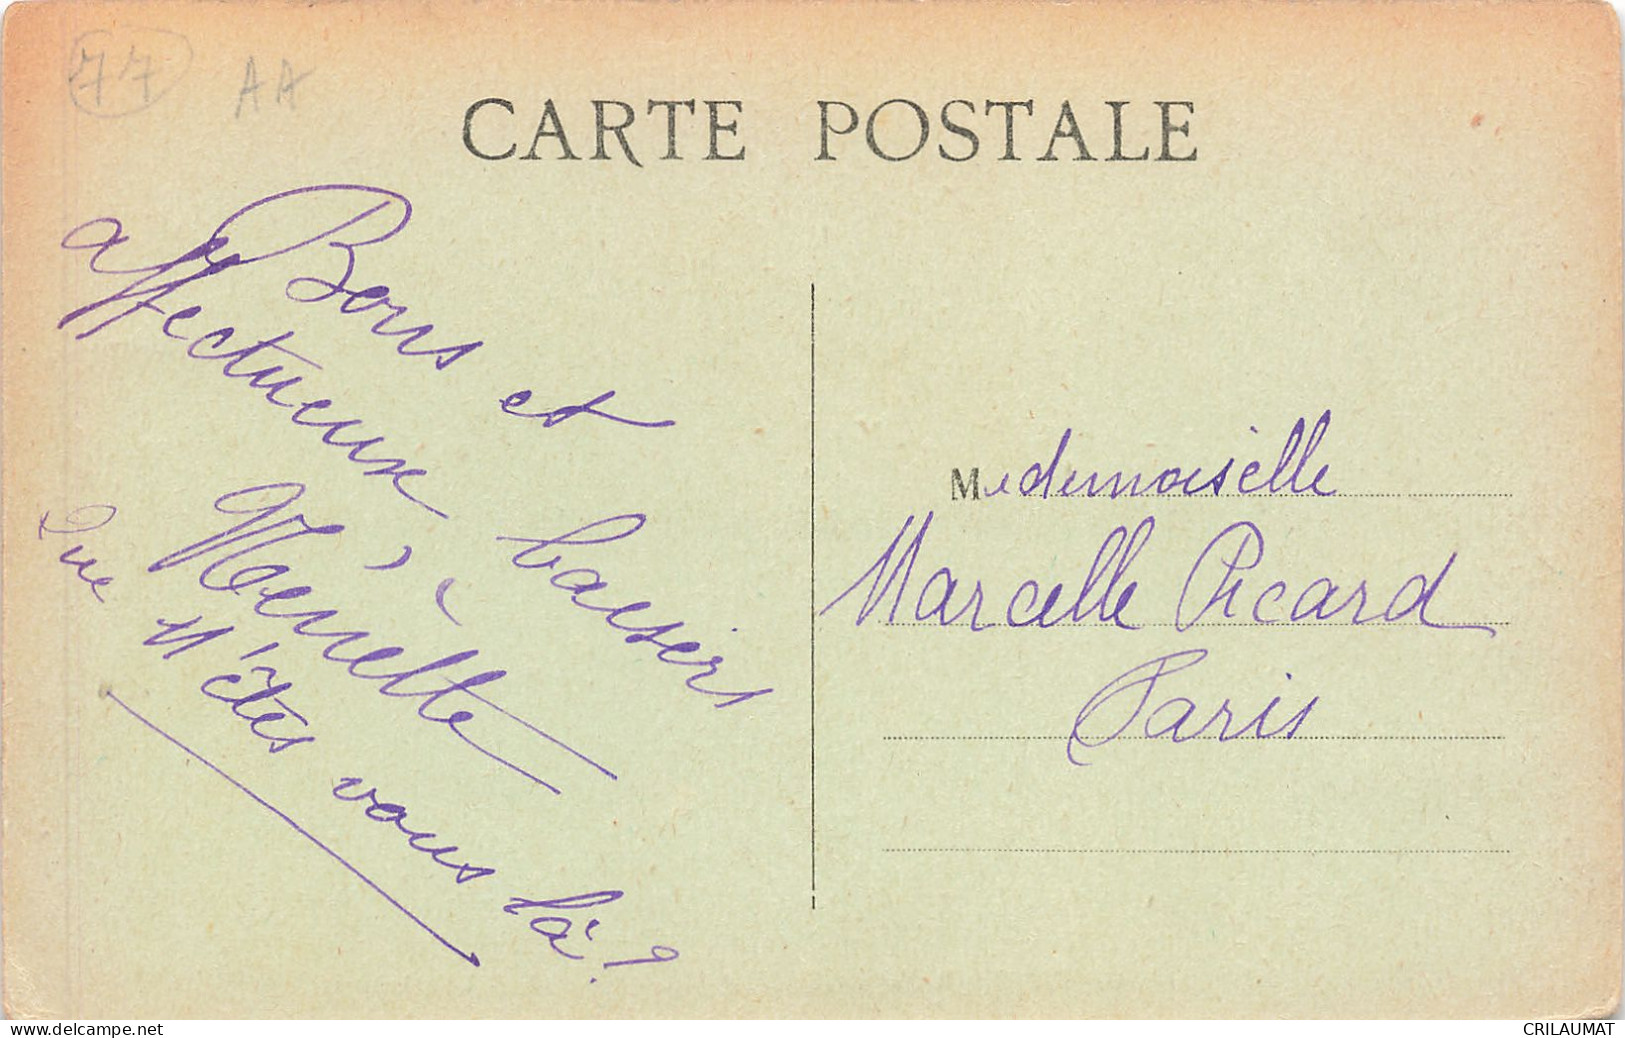 77 AA
CARTE POSTALE
Bons et baisers
affectueux,
Que n'êtes vous là ?
Mademoiselle
Marcelle Picard
Paris
www.delcampe.net
CRILAUMAT